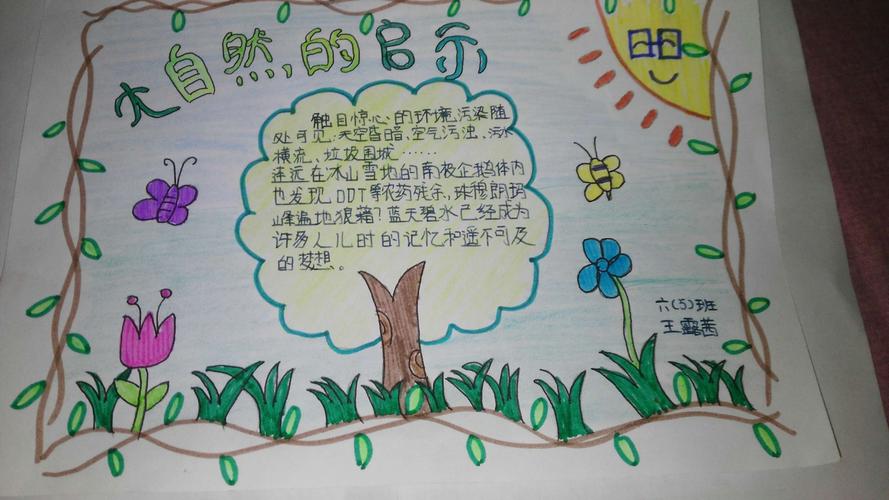 大自然的启示
触目惊心的环境污染随
处可见,天空昏暗、空气污浊、污水
横流、垃圾围城……
连远在冰山雪地的南极企鹅体内
也发现DDT等农药残余,珠穆朗玛
峰遍地狼藉?蓝天碧水已经成为
许多人儿时的记忆和遥不可及
的梦想。
六(5)班
王露茜